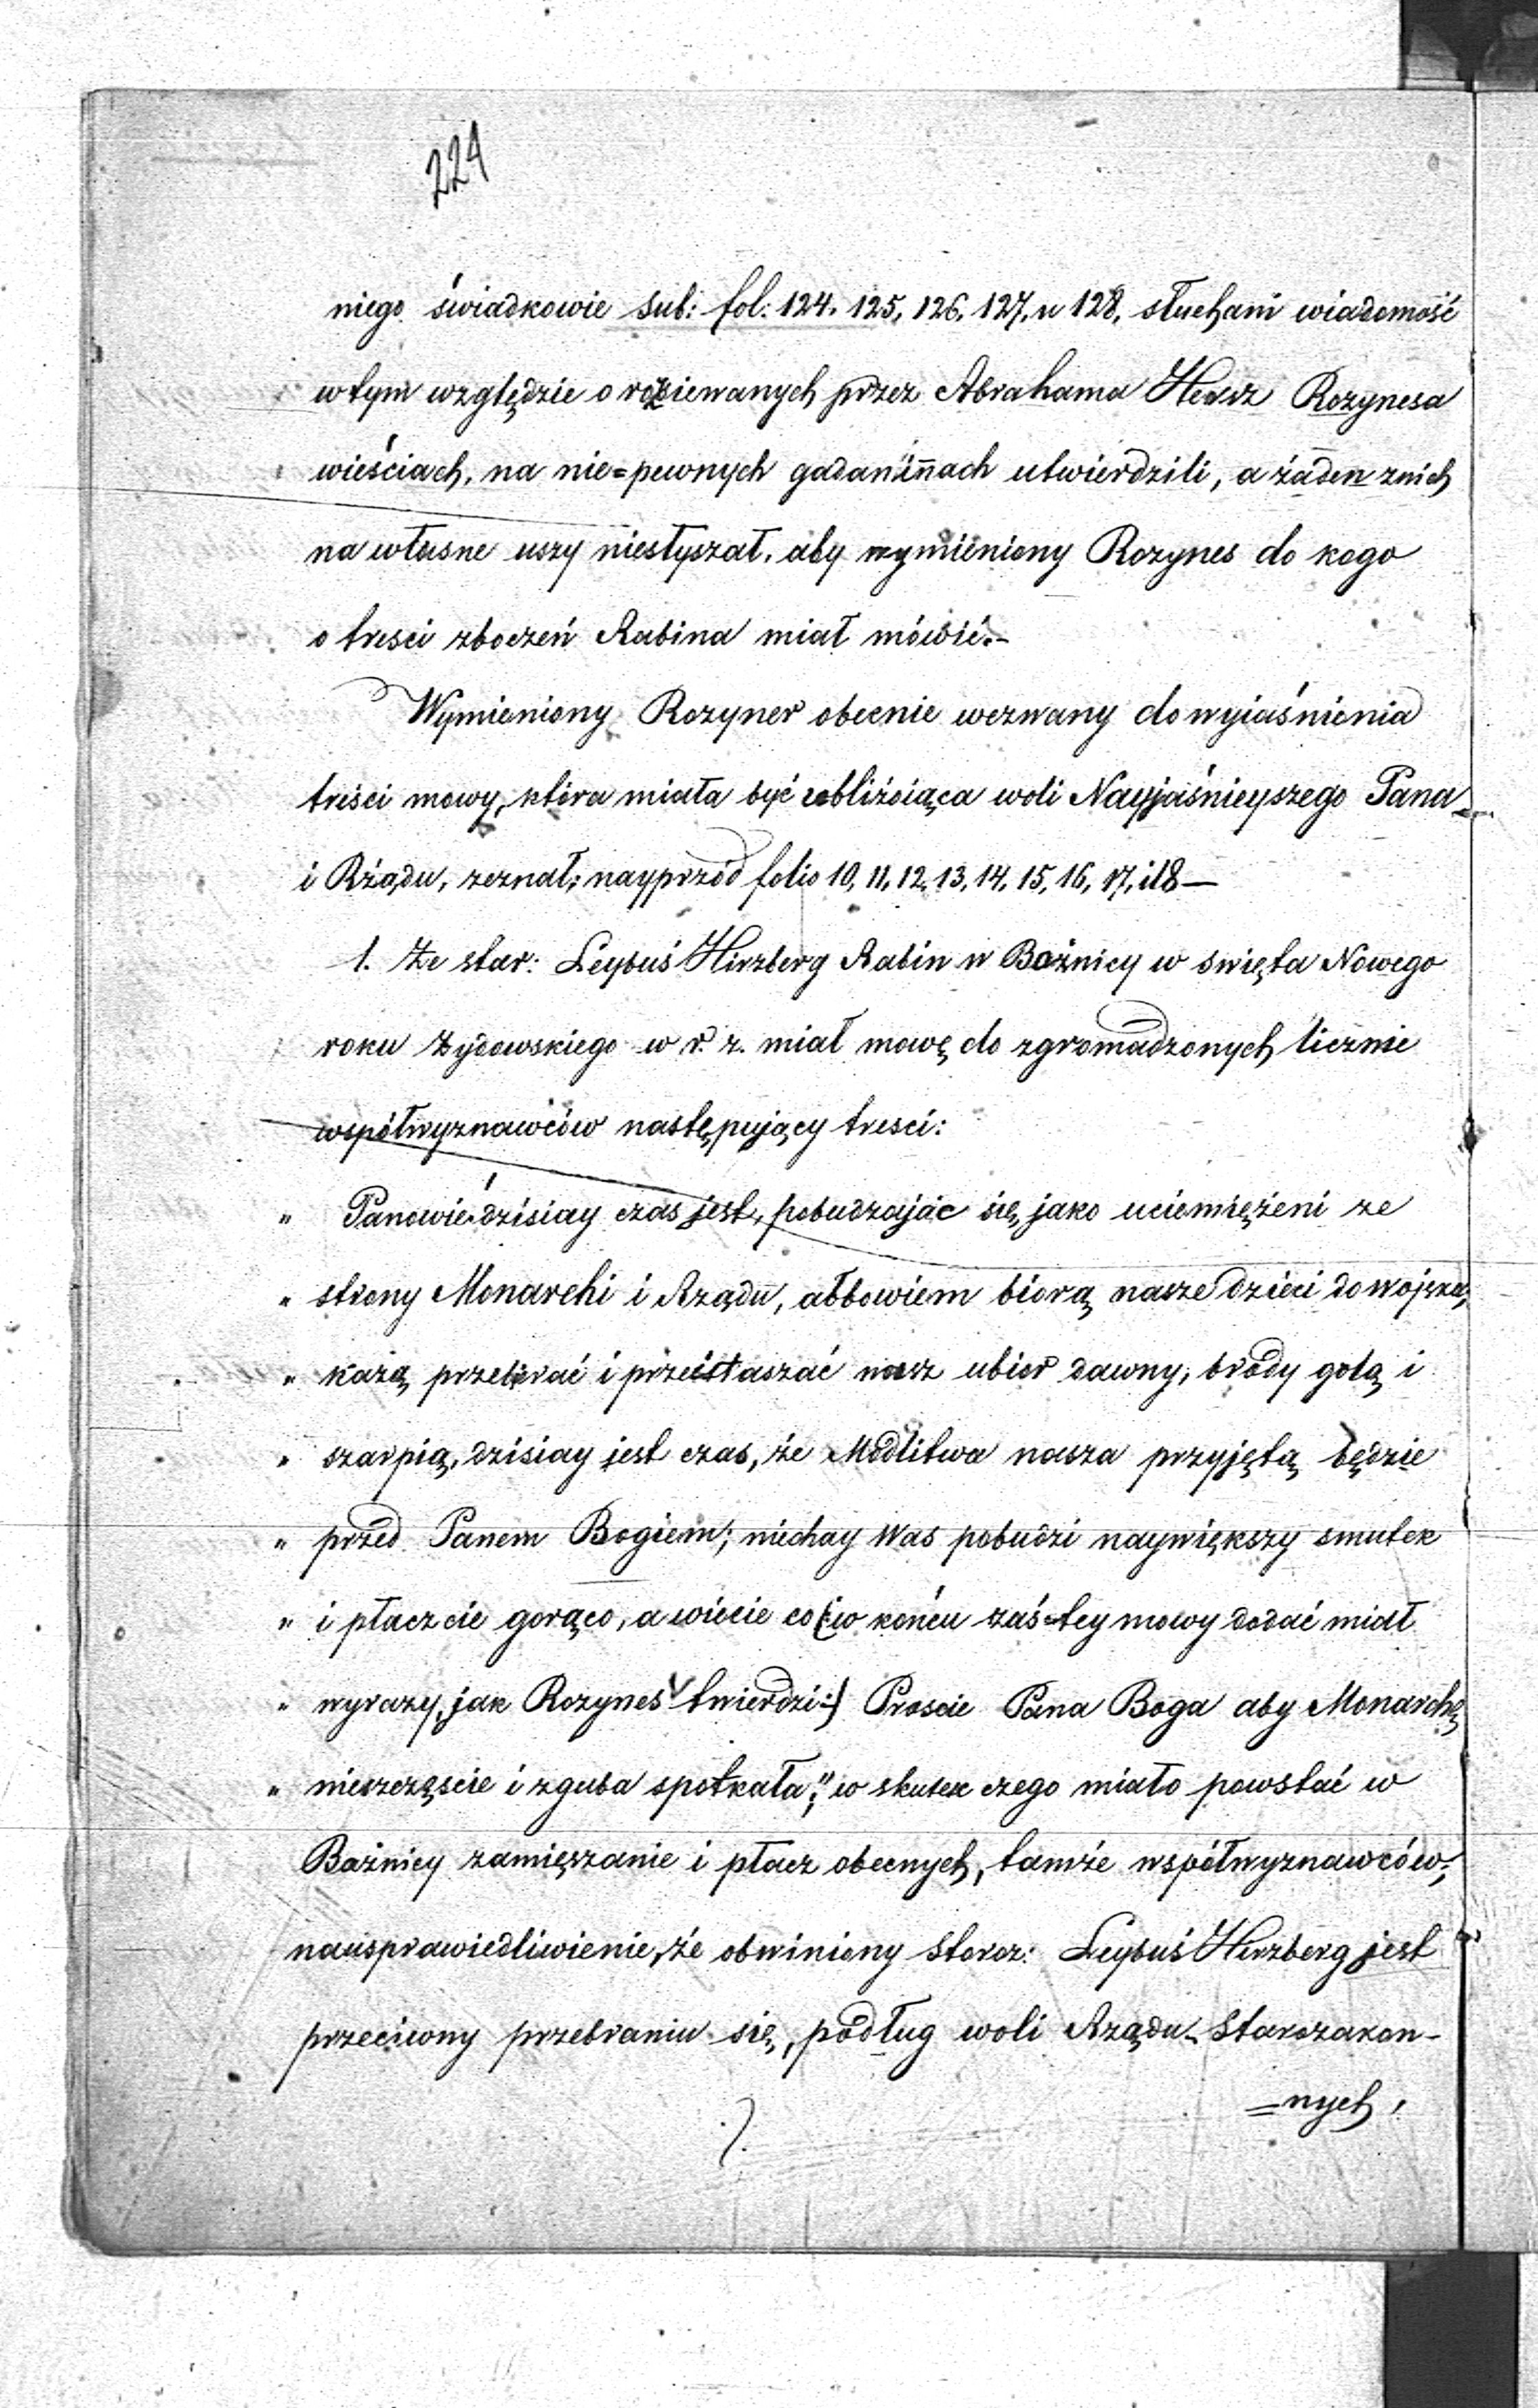 224
niego świadkowie sub: fol: 124. 125. 126. 127. u 128. słuchani wiadomość
w tym względzie o rozsiewanych przez Abrahama Hersz Rozynesa
wieściach, na nie=pewnych gadaninnach utwierdzili, a żaden z nich
na własne uszy niesłyszał, aby wymieniony Rozynes do kogo
o tresci zboczeń Rabina miał mówić.-
Wymieniony Rozyner obecnie wezwany do wyiaśnienia
treści mowy, która miała być ubliżaiąca woli Nayjaśnieyszego Pana
i Rżądu, zeznał; nayprzód folio 10, 11, 12, 13, 14, 15, 16, 17, i 18 —
1. Że star: Leybuś Hirzberg Rabin w Bożnicy w swięta Nowego
roku Żydowskiego w r. z. miał mowę do zgromadzonych licznie
współwyznawców następujący tresci:
" Panowie dzisiay czas jest, pobudzając się, jako uciemiężeni ze
" strony Monarchi i Rządu, albowiem biorą nasze dzieci do wojska,
" każą przebierać i przeistaszać nasz ubior dawny, brody golą i
" szarpią, dzisiay jest czas, że Modlitwa nasza przyjętą będzie
" przed Panem Bogiem; niechay Was pobudzi naywiększy smutek
" i płaczcie gorąco, a wiecie co (:w końcu zaś tey mowy dodać miał
" wyrazy, jak Rozynes twierdzi:) Proscie Pana Boga aby Monarchę
" nieszczęście i zguba spotkała;" w skutek czego miało powstać w
Bożnicy zamięszanie i płacz obecnych, tamże współwyznawców;
na usprawiedliwienie, że obwiniony Staroz: Leybuś Herzberg jest
przeciwny przebraniu się, podług woli Rządu Starozakon-
=nych,